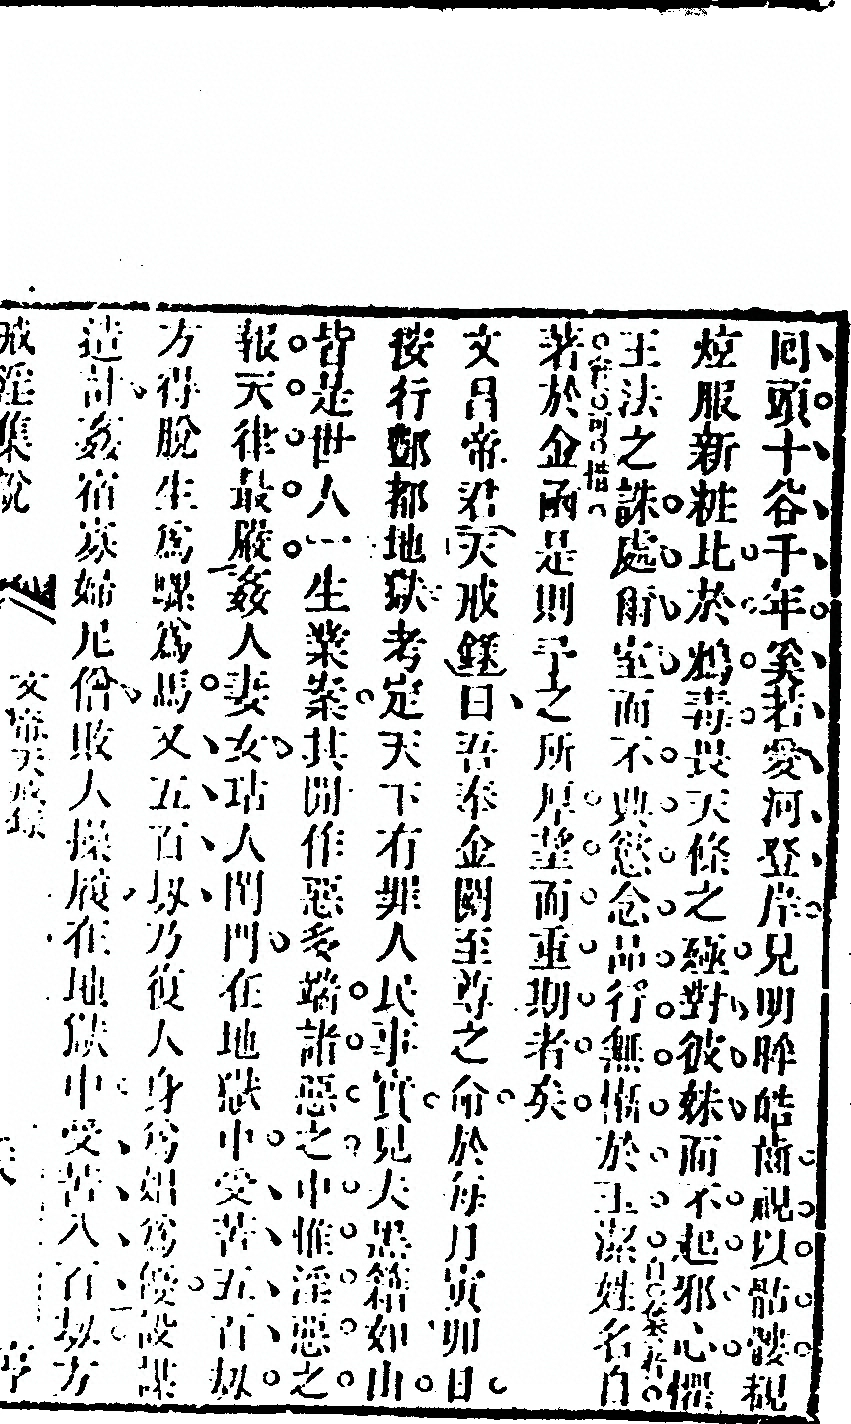 回頭十谷千年奚若愛河登岸見明眸皓齒視以骷髏覩
炫服新粧比於鴆毒畏天條之殛對彼姝而不起邪心懼
王法之誅處爾室而不興慾念品行無慚於玉潔姓名自
著於金函是則予之所厚望而重期者矣
文昌帝君天戒錄曰吾奉金闕至尊之命於每月寅卯日
按行酆都地獄考定天下有罪人民事實見夫黑籍如山
皆是世人一生業案其間作惡多端諸惡之中惟淫惡之
報天律最嚴姦人妻女玷人閨門在地獄中受苦五百劫
方得脫生爲騾爲馬又五百劫乃復人身爲娼爲優設謀
造計姦宿寡婦尼僧敗人操履在地獄中受苦八百劫方
戒淫集說
文帝天戒錄